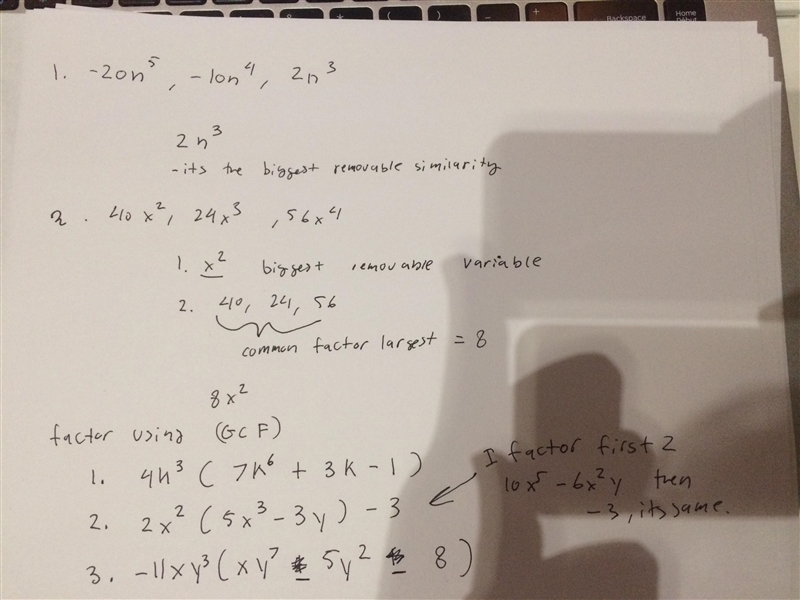 Backspace
Home
Début
1. -20n⁵, -10n⁴, 2n³
2n³
- its the biggest removable similarity
2. 40x², 24x³, 56x⁴
1. x² biggest removable variable
2. 40, 24, 56
common factor largest = 8
8x²
factor using (GCF)
1. 4k³(7k⁶ + 3k - 1)
2. 2x²(5x³ - 3y) - 3
I factor first 2
10x⁵ - 6x²y then
-3, its same.
3. -11xy³(xy⁷ 5y² 8)